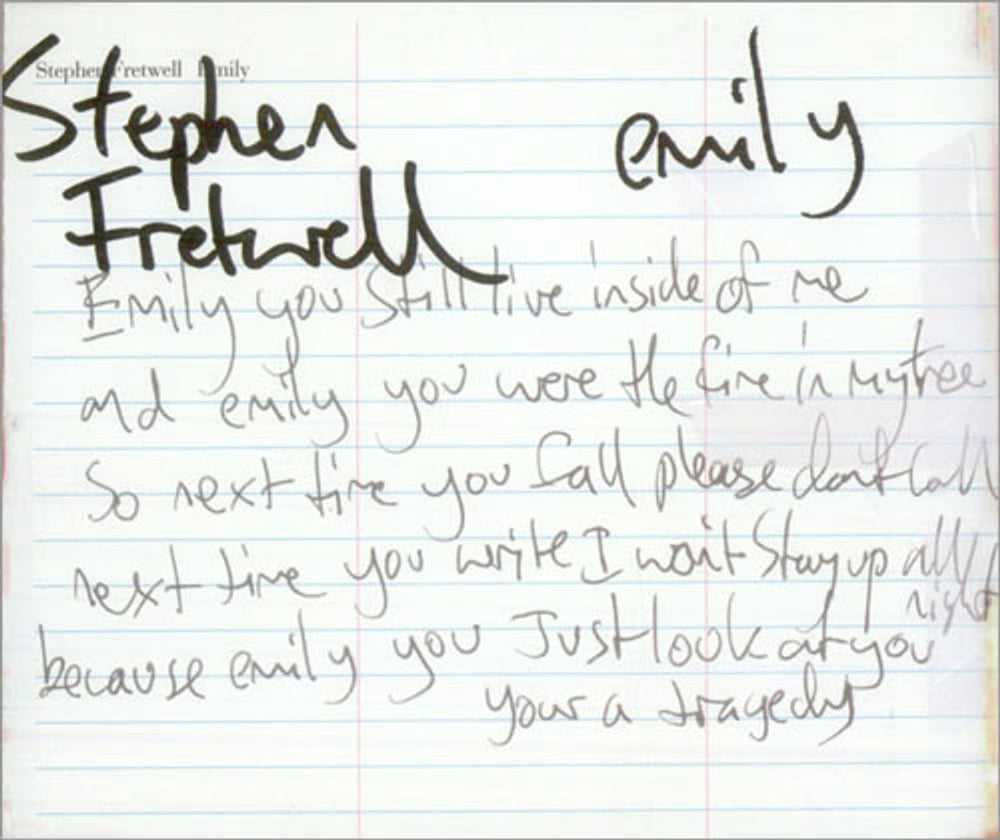 Stephen Fretwell Emily
Stephen emily
Fretwell
Emily you still live inside of me
and emily you were the fire in my tree
So next time you fall please dont call
next time you write I wont Stay up all
night
because emily you Just look at you
your a tragedy